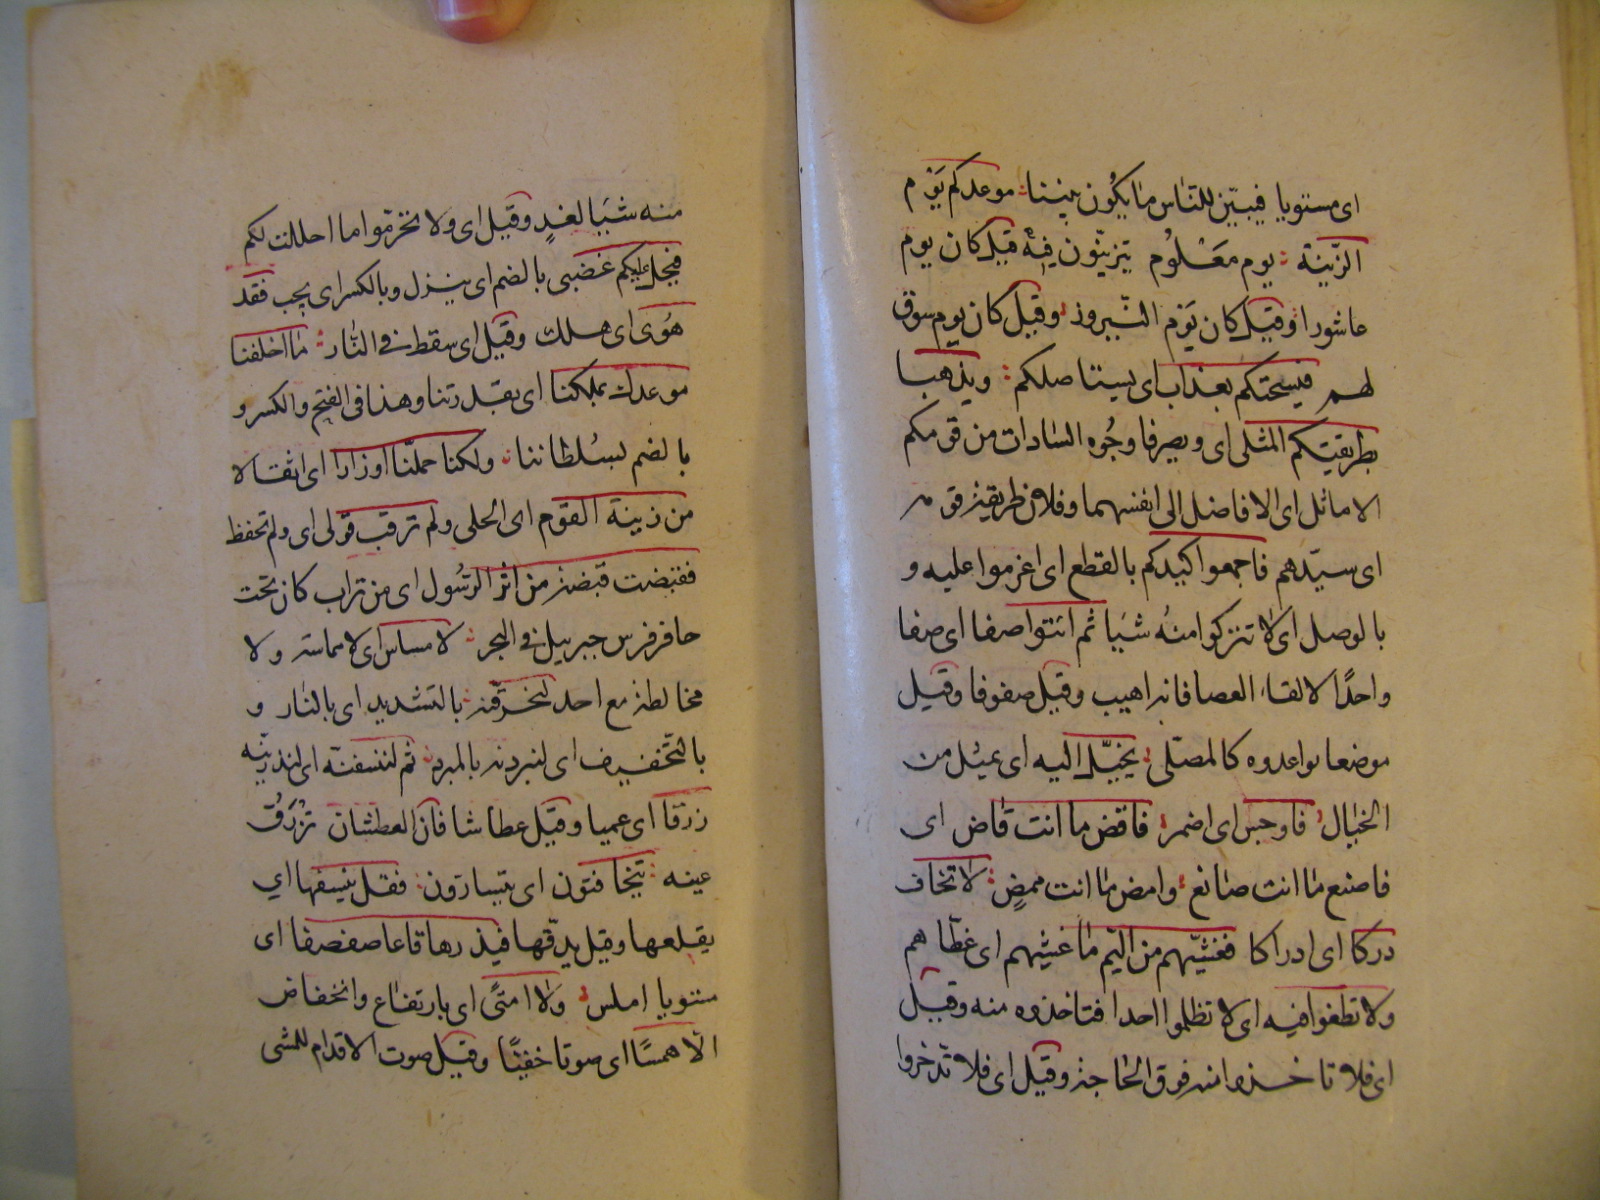 اى مستويا فيبيّن للنّاس ما يكون بيننا موعدكم يَوْم
الزّينة يوم مَعْلوُم يتزينّون فيهْ قيل كان يوم
عاشورا وقيل كان يَوْم النّيروز وقيل كان يوم سوق
لهم فيسحتكم بعذاب اى يستاصلكم ويذهبا
بطريقتكم المثلى اى ويصرفا وجُوه السّادات من قومكم
الاماثل اى الافاضل الى انفسهما وفلان طريقة قومه
اى سيّدهم فاجمعوا كيدكم بالقطع اى اعزموا عليه و
بالوصل اى لا تتركوا منهُ شيَا ثم ائتوا صفا اى صفا
واحدًا لالقاء العصا فانه اهيب وقيل صفوفا وقيل
موضعا تواعدوه كالمصلّى يخيّل اليه اى يميُل من
الخيال فاوجس اى اضمر فاقض ما انت قاض اى
فاصنع ما انت صانع وامض ما انت ممضٍ لا تخاف
دركا اى ادراكا فغشيّهم من اليّم ما غشيهم اى غطّاهم
ولا تطغوا فيه اى لا تظلموا احدا فتاخذوه منه وقيل
اى فلا تاخذوا منه فوق الحاجة وقيل اى فلا تدّخروا
منه شيَا لغدٍ وقيل اى ولا تحرّموا ما احللت لكم
فيحل عليكم غضبى بالضم اى ينزل وبالكسر اى يجب فقد
هَوى اى هلك وقيل اى سقط فى النّار ما اخلفنا
موعدك بملكنا اى بقدرتنا وهذا فى الفتح والكسر و
بالضم بسُلطاننا ولكنا حملّنا اوزارا اى اثقالا
من زينة القوم اى الحلى ولم ترقب قَولى اى ولم تحفظ
فقبضت قبضة من اثر الرسُول اى من تراب كان تحت
حافر فرس جبريل فى البحر لا مساس اى لا مماسة ولا
مخالطة مع احد لنحرّقنه بالتشديد اى بالنار و
بالتّخفيف اى لنبردنه بالمبرد ثم لننسفنّه اى لنذرينّه
زرقا اى عميا وقيل عطاشا فان العطشان تزْرَقُ
عينه يتخافتون اى يتسارّون فقل ينسفها اي
يقلعها وقيل يدقّها فيذرها قاعا صفصفا اى
مستويا املس ولا امتًى اى بارتفاع وانخفاض
الّا همسًا اى صوتا خفيّا وقيل صوت الاقدام للمشى